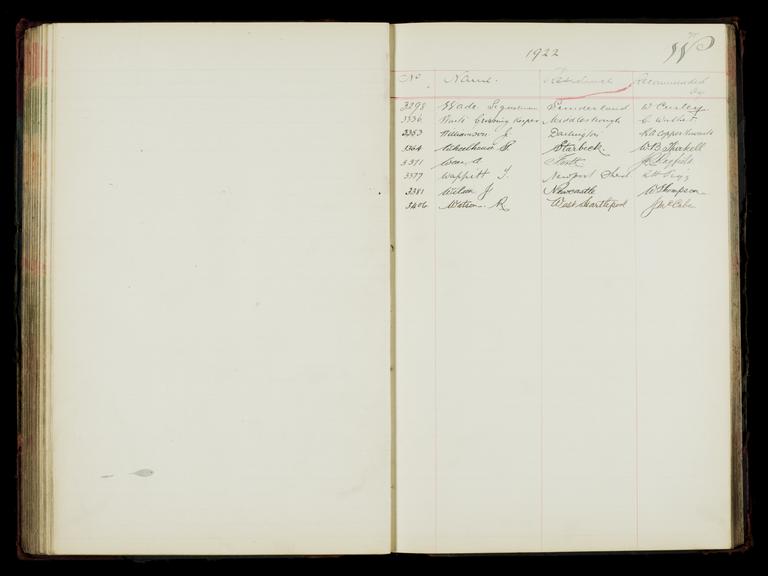 1922
W
No Name. Residence Recommended by
3298 Wade Signalman Sunderland W Curley
3336 Waite Crossing Keeper Middlesbrough C
3353 Williamson J. Darlington
3364 Wheelhouse Starbeck W.B. Thirkell
3371 A York
3377 Wappett T. Newport Shed
3381 Wilson J Newcastle W Thompson
3406 Watson R West Hartlepool J McCabe